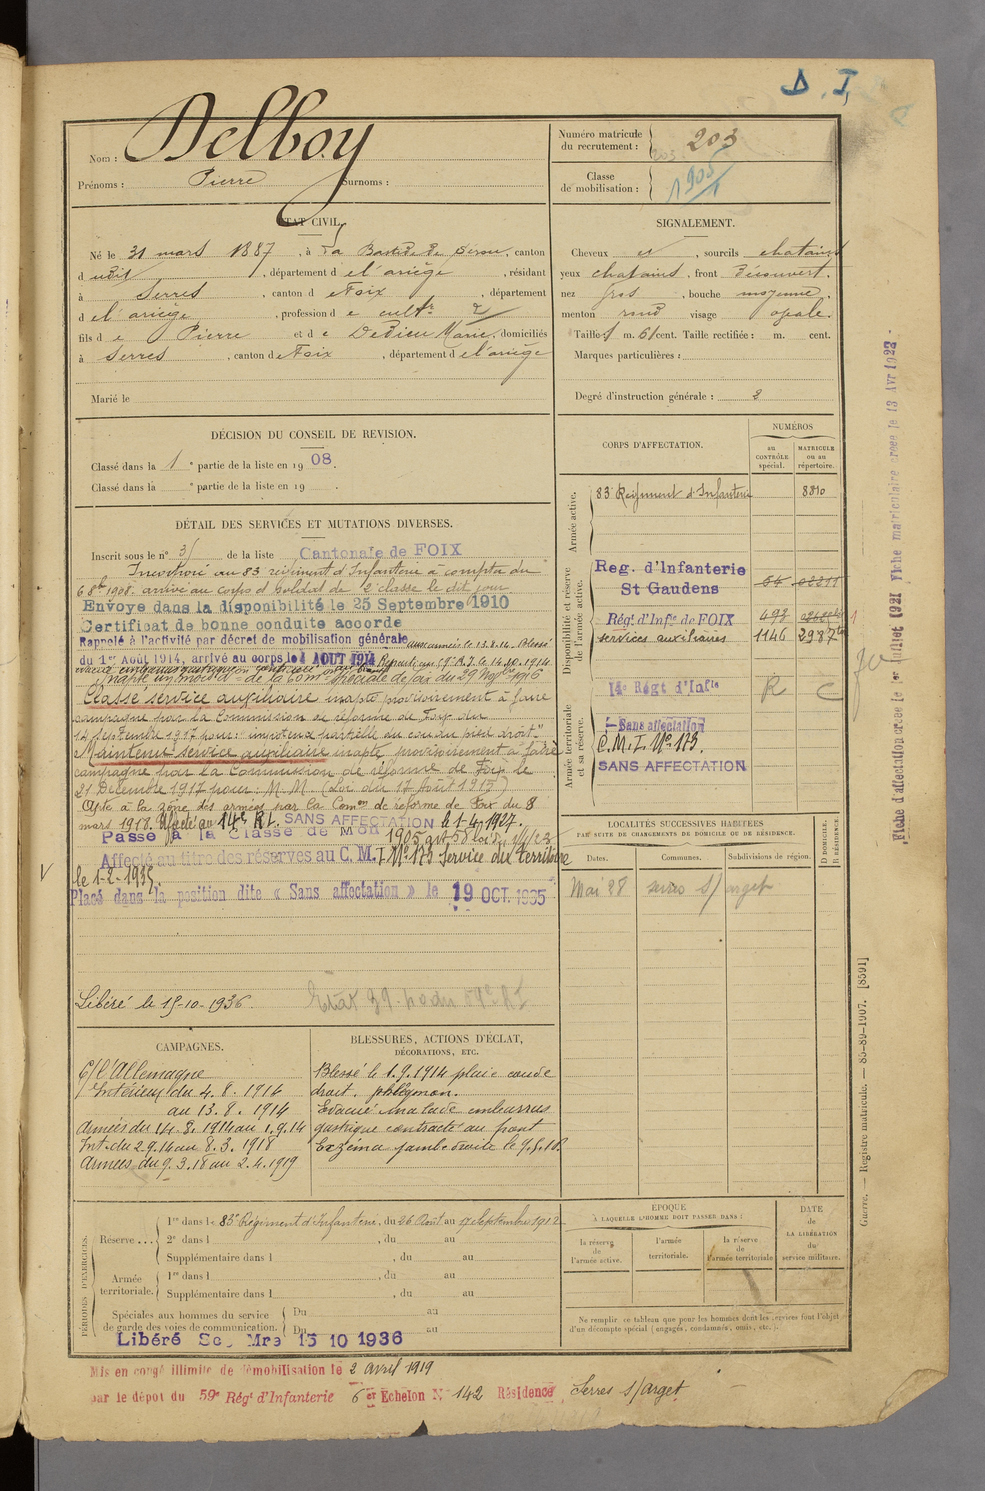 D. I.
Nom : Delboy
Prénoms : Pierre Surnoms :
Numéro matricule du recrutement : 203
Classe de mobilisation : 1905
ÉTAT CIVIL.
Né le 31 mars 1887, à La Bastide de Sérou, canton
dudit, département de l'ariège, résidant
à Serres, canton de Foix, département
de l'ariège, profession de cultr
fils de Pierre et de Dedieu Marie, domiciliés
à Serres, canton de Foix, département de l'ariège
Marié le
SIGNALEMENT.
Cheveux et, sourcils chatains
yeux chatains, front découvert,
nez gros, bouche moyenne,
menton rond visage ovale.
Taille 1 m. 61 cent. Taille rectifiée : m. cent.
Marques particulières :
Degré d'instruction générale : 2
DÉCISION DU CONSEIL DE REVISION.
Classé dans la 1e partie de la liste en 1908.
Classé dans la e partie de la liste en 19 .
DÉTAIL DES SERVICES ET MUTATIONS DIVERSES.
Inscrit sous le n° 31 de la liste Cantonale de FOIX
Incorporé au 83 régiment d'Infanterie à compter du
6 8bre 1908. arrivé au corps et soldat de 2e classe le dit jour
Envoyé dans la disponibilité le 25 Septembre 1910
Certificat de bonne conduite accordé
Rappelé à l'activité par décret de mobilisation générale aux armées le 13.8.14. Blessé
du 1er Août 1914, arrivé au corps le 4 AOUT 1914 Reparti au 59e R.I. le 14.10.1914
Inapte un mois de la Comon spéciale de Foix du 29 1916
Classé service auxiliaire inapte provisoirement à faire
campagne par la Commission de réforme de Foix du
14 Septembre 1917 pour : impotence partielle du coude droit"
Maintenu service auxiliaire inapte provisoirement à faire
campagne par la Commission de réforme de Foix le
21 Décembre 1917 pour : M. M. (Loi du 17 Août 1915)
Apte à la zône des armées par la Comon de réforme de Foix du 8
mars 1918. Affecté au 14e R.I. SANS AFFECTATION le 1-4-1927.
Passé à la Classe de Mon 1905 art 58 loi du 1/4/23
Affecté au titre des réserves au C.M.I. No 173 Service du Territoire
le 1-2-1935
Placé dans la position dite « Sans affectation » le 19 OCT. 1935
Libéré le 15-10-1936.
CORPS D'AFFECTATION.
NUMÉROS
au CONTRÔLE spécial.
MATRICULE ou au répertoire.
Armée active.
83e Régiment d'Infanterie 8810
Disponibilité et réserve de l'armée active.
Reg. d'Infanterie
St Gaudens
Régt d'Infie de FOIX 492
services auxiliaires 1146 2987
Armée territoriale et sa réserve.
14e Régt d'Infie R C
Sans affectation
C.M.I. No 173.
SANS AFFECTATION
LOCALITÉS SUCCESSIVES HABITÉES
PAR SUITE DE CHANGEMENTS DE DOMICILE OU DE RÉSIDENCE.
Dates. Communes. Subdivisions de région. D DOMICILE. R RÉSIDENCE.
Mai 28 Serres s/ arget
CAMPAGNES.
C/ l'Allemagne
Intérieur du 4.8.1914
au 13.8.1914
Armées du 14.8.1914 au 1.9.14
Int. du 2.9.14 au 8.3.1918
Armées du 9.3.18 au 2.4.1919
BLESSURES, ACTIONS D'ÉCLAT,
DÉCORATIONS, ETC.
Blessé le 1.9.1914 plaie coude
droit. phlegmon.
Evacué malade embarras
gastrique contracté au front
Exzéma jambe droite le
PÉRIODES D'EXERCICES.
Réserve...
1re dans le 83e Régiment d'Infanterie, du 26 Août au 17 Septembre 1912
2e dans l , du au
Supplémentaire dans l , du au
Armée territoriale.
1re dans l , du au
Supplémentaire dans l , du au
Spéciales aux hommes du service de garde des voies de communication.
Du au
Du au
Libéré Se Mre 15 10 1936
ÉPOQUE
À LAQUELLE L'HOMME DOIT PASSER DANS :
la réserve de l'armée active.
l'armée territoriale.
la réserve de l'armée territoriale
DATE de LA LIBÉRATION du service militaire.
Ne remplir ce tableau que pour les hommes dont les services font l'objet
d'un décompte spécial (engagés, condamnés, omis, etc.).
Mis en congé illimité de démobilisation le 2 avril 1919
par le dépôt du 59e Rég' d'Infanterie 6e Echelon No 142 Résidence Serres s/arget
Fiche d'affectation créée le 1er Juillet 1921 Fiche matriculaire créée le 13 Avr 1922
Guerre. — Registre matricule. — 85-89-1907. [8591]